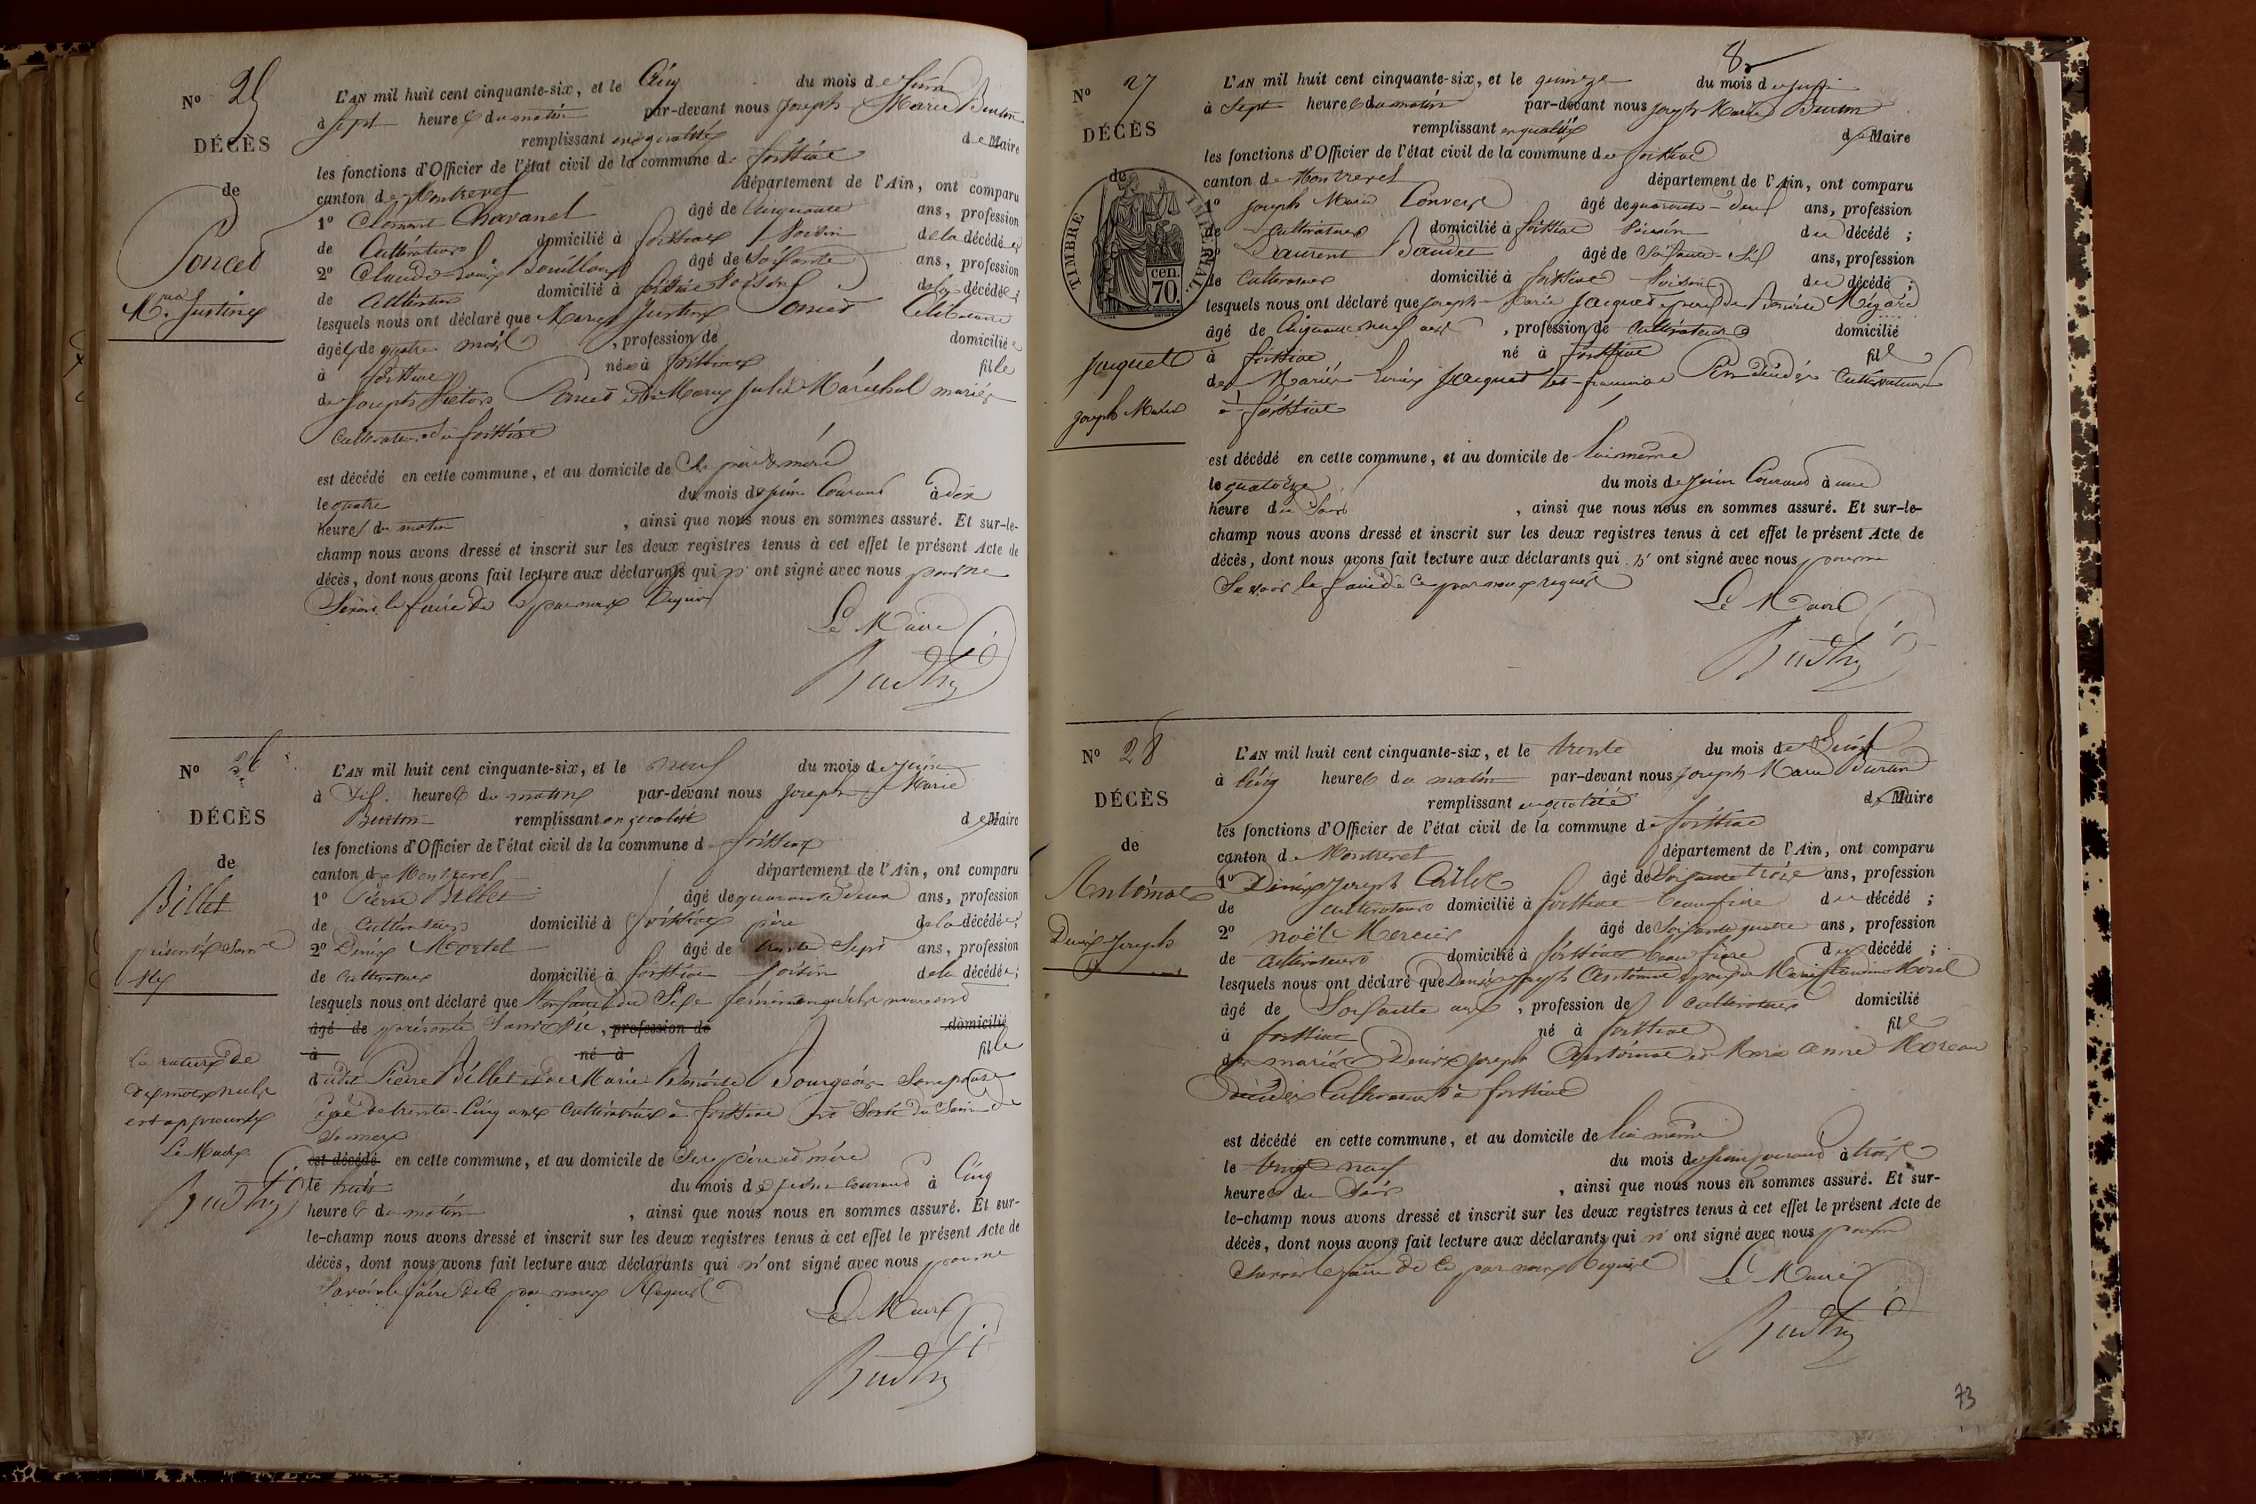 N° 25
DÉCÈS
de
Poncet
Mie Justine
L'AN mil huit cent cinquante-six, et le Cinq du mois de Juin
à sept heures du matin par-devant nous Joseph Marie Burtin
remplissant en qualité de Maire
les fonctions d'Officier de l'état civil de la commune de foissiat
canton de Montrevel département de l'Ain, ont comparu
1° Clément Chavanel âgé de Cinquante ans, profession
de Cultivateur domicilié à foissiat Voisin de la décédée
2° Claude Louis Bouilloux âgé de Soixante ans, profession
de Cultivateur domicilié à foissiat Voisin de la décédée;
lesquels nous ont déclaré que Marie Justine Poncet Célibataire
âgée de quatre mois, profession de domiciliée
à foissiat née à foissiat fille
de Joseph Victor Poncet et de Marie Julie Maréchal mariés
Cultivateurs à foissiat
est décédé en cette commune, et au domicile de Ses père et mère
le quatre du mois de juin Courant à dix
heures du matin, ainsi que nous nous en sommes assuré. Et sur-le-
champ nous avons dressé et inscrit sur les deux registres tenus à cet effet le présent Acte de
décès, dont nous avons fait lecture aux déclarants qui n'ont signé avec nous pour ne
Savoir le faire de ce par nous Requis
Le Maire
N° 26
DÉCÈS
de
Billet
présenté Sans
Vie
la rature de
dix mots nuls
est approuvée
Le Maire
L'AN mil huit cent cinquante-six, et le neuf du mois de juin
à Six heures du matin par-devant nous Joseph Marie
Burtin remplissant en qualité de Maire
les fonctions d'Officier de l'état civil de la commune de foissiat
canton de Montrevel département de l'Ain, ont comparu
1° Pierre Billet âgé de quarante deux ans, profession
de Cultivateur domicilié à foissiat père de la décédée;
2° Denis Mortel âgé de trente Sept ans, profession
de Cultivateur domicilié à foissiat Voisin de la décédée;
lesquels nous ont déclaré que Un enfant du Sexe féminin qu'ils nous ont
âgé de présenté Sans Vie, profession de domicilié
à né à fille
dudit Pierre Billet et de Marie Benoite Bourgeois Son épouse
âgée de trente-Cinq ans Cultivatrice à foissiat est Sorti du Sein de
Sa mère
est décédé en cette commune, et au domicile de Ses père et mère
le huit du mois de juin courant à Cinq
heures du matin, ainsi que nous nous en sommes assuré. Et sur-
le-champ nous avons dressé et inscrit sur les deux registres tenus à cet effet le présent Acte de
décès, dont nous avons fait lecture aux déclarants qui n'ont signé avec nous pour ne
Savoir le faire de ce par nous Requis
Le Maire
8
N° 27
DÉCÈS
de
TIMBRE IMPÉRIAL
70 cen.
Jacquet
Joseph Marie
L'AN mil huit cent cinquante-six, et le quinze du mois de juin
à Sept heures du matin par-devant nous Joseph Marie Burtin
remplissant en qualité de Maire
les fonctions d'Officier de l'état civil de la commune de foissiat
canton de Montrevel département de l'Ain, ont comparu
1° Joseph Marie Convert âgé de quarante-deux ans, profession
de Cultivateur domicilié à foissiat Voisin du décédé;
2° Laurent Baudet âgé de Soixante-Six ans, profession
de Cultivateur domicilié à foissiat Voisin du décédé;
lesquels nous ont déclaré que Joseph-Marie Jacquet époux de Benoite Mégard
âgé de Cinquante neuf ans, profession de Cultivateur domicilié
à foissiat né à foissiat fils
des Mariés Louis Jacquet et françoise Perdrix décédés Cultivateurs
à foissiat
est décédé en cette commune, et au domicile de lui même
le quatorze du mois de juin Courant à une
heure du Soir, ainsi que nous nous en sommes assuré. Et sur-le-
champ nous avons dressé et inscrit sur les deux registres tenus à cet effet le présent Acte de
décès, dont nous avons fait lecture aux déclarants qui n'ont signé avec nous pour ne
Savoir le faire de ce par nous requis
Le Maire
N° 28
DÉCÈS
de
Antoinat
Denis Joseph
L'AN mil huit cent cinquante-six, et le trente du mois de Juin
à Cinq heures du matin par-devant nous Joseph Marie Burtin
remplissant en qualité de Maire
les fonctions d'Officier de l'état civil de la commune de foissiat
canton de Montrevel département de l'Ain, ont comparu
1° Denis Joseph âgé de Soixante trois ans, profession
de Cultivateur domicilié à foissiat beau frère du décédé;
2° noël Mercier âgé de Soixante quatre ans, profession
de Cultivateur domicilié à foissiat beau frère du décédé;
lesquels nous ont déclaré que Denis Joseph Antoinat époux de Marie Claudine Morel
âgé de Soixante ans, profession de Cultivateur domicilié
à foissiat né à foissiat fils
des mariés Denis Joseph Antoinat et Marie Anne Moreau
décédés Cultivateurs à foissiat
est décédé en cette commune, et au domicile de lui même
le Vingt neuf du mois de juin courant à trois
heures du Soir, ainsi que nous nous en sommes assuré. Et sur-
le-champ nous avons dressé et inscrit sur les deux registres tenus à cet effet le présent Acte de
décès, dont nous avons fait lecture aux déclarants qui n'ont signé avec nous pour ne
Savoir le faire de ce par nous Requis
Le Maire
73